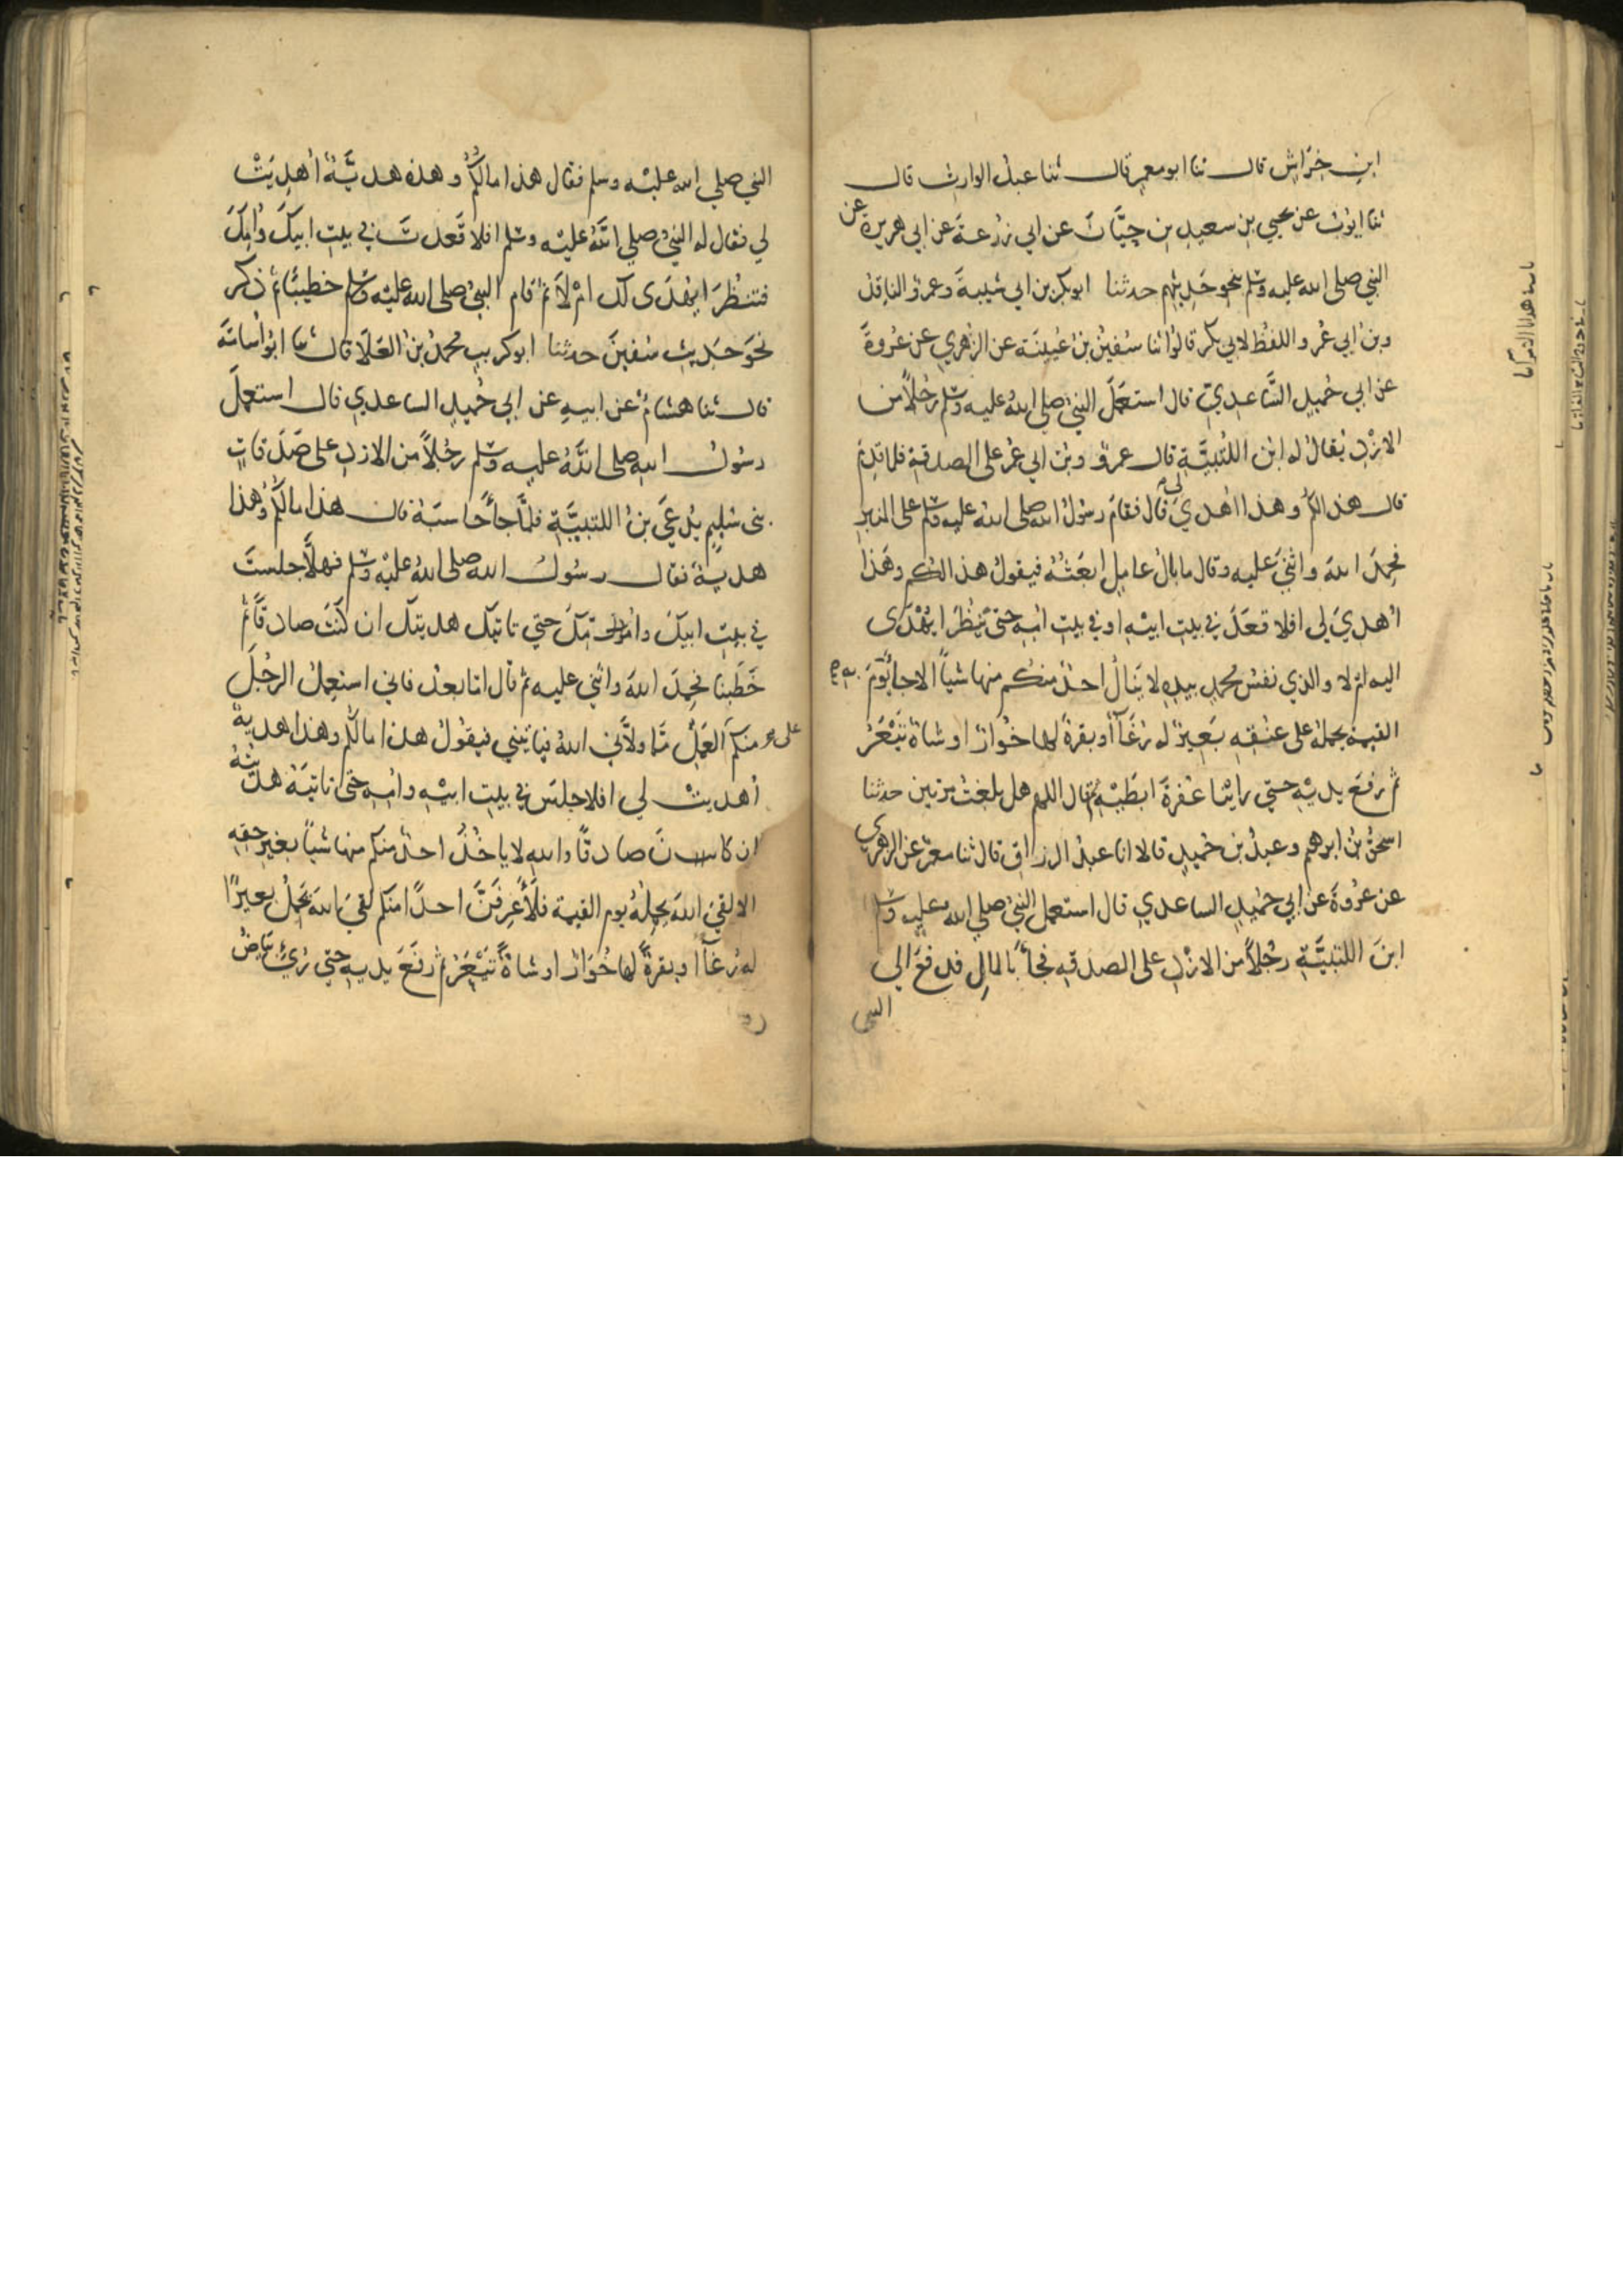 ابن خراش قال ثنا ابو معمر قال ثنا عبد الوارث قال
ثنا ايوب عن يحيي بن سعيد بن حيان عن ابي زرعة عن ابي هريرة عن
النبي صلى الله عليه وسلم بنحو حديثهم حدثنا ابو بكر بن ابي شيبة وعمرو الناقد
وبن ابي عمر واللفظ لابي بكر قالوا ثنا سفين بن عيينة عن الزهري عن عروة
عن ابي حميد الساعدي قال استعمل النبي صلي الله عليه وسلم رجلا من
الازد يقال له ابن اللتبية قال عمرو وبن ابي عمر على الصدقة فلما قدم
قال هذا لكم وهذا اهدي لي قال فقام رسول الله صلى الله عليه وسلم على المنبر
فحمد الله واثني عليه وقال ما بال عامل ابعثه فيقول هذا لكم وهذا
اهدي لي افلا قعد في بيت ابيه او في بيت امه حتى ينظر ايهدى
اليه ام لا والذي نفس محمد بيده لا ينال احد منكم منها شيا الا جا به يوم
القيمة يحمله على عنقه بعير له رغا او بقرة لها خوار او شاة تيعر
ثم رفع يديه حتي راينا عفرة ابطيه ثم قال اللهم هل بلغت مرتين حدثنا
اسحق بن ابرهيم وعبد بن حميد قالا انا عبد الرزاق قال ثنا معمر عن الزهري
عن عروة عن ابي حميد الساعدي قال استعمل النبي صلي الله عليه وسلم
ابن اللتبية رجلا من الازد على الصدقه فجا بالمال فدفع الى
النبي
النبي صلي الله عليه وسلم فقال هذا مالكم وهذه هدية اهديت
لي فقال له النبي صلي الله عليه وسلم افلا قعدت في بيت ابيك وامك
فتنظر ايهدى لك ام لا ثم قام النبي صلى الله عليه وسلم خطيبا ثم ذكر
نحو حديث سفين حدثنا ابو كريب محمد بن العلا قال ثنا ابو اسامة
قال ثنا هشام عن ابيه عن ابي حميد الساعدي قال استعمل
رسول الله صلى الله عليه وسلم رجلا من الازد على صدقات
بنى سليم يدعى بن اللتبية فلما جا حاسبه قال هذا مالكم وهذا
هدية فقال رسول الله صلى الله عليه وسلم فهلا جلست
في بيت ابيك وامك حتي تاتيك هديتك ان كنت صادقا ثم
خطبنا فحمد الله واثني عليه ثم قال اما بعد فاني استعمل الرجل
منكم على العمل مما ولاني الله فياتيني فيقول هذا مالكم وهذا هدية
اهديت لي افلا جلس في بيت ابيه وامه حتى تاتيه هديته
ان كان صادقا والله لا ياخذ احد منكم منها شيا بغير حقه
الا لقي الله يحمله يوم القيمة فلاعرفن احدا منكم لقي الله يحمل بعيرا
له رغا او بقرة لها خوار او شاة تيعر ثم رفع يديه حتي رئي بياض